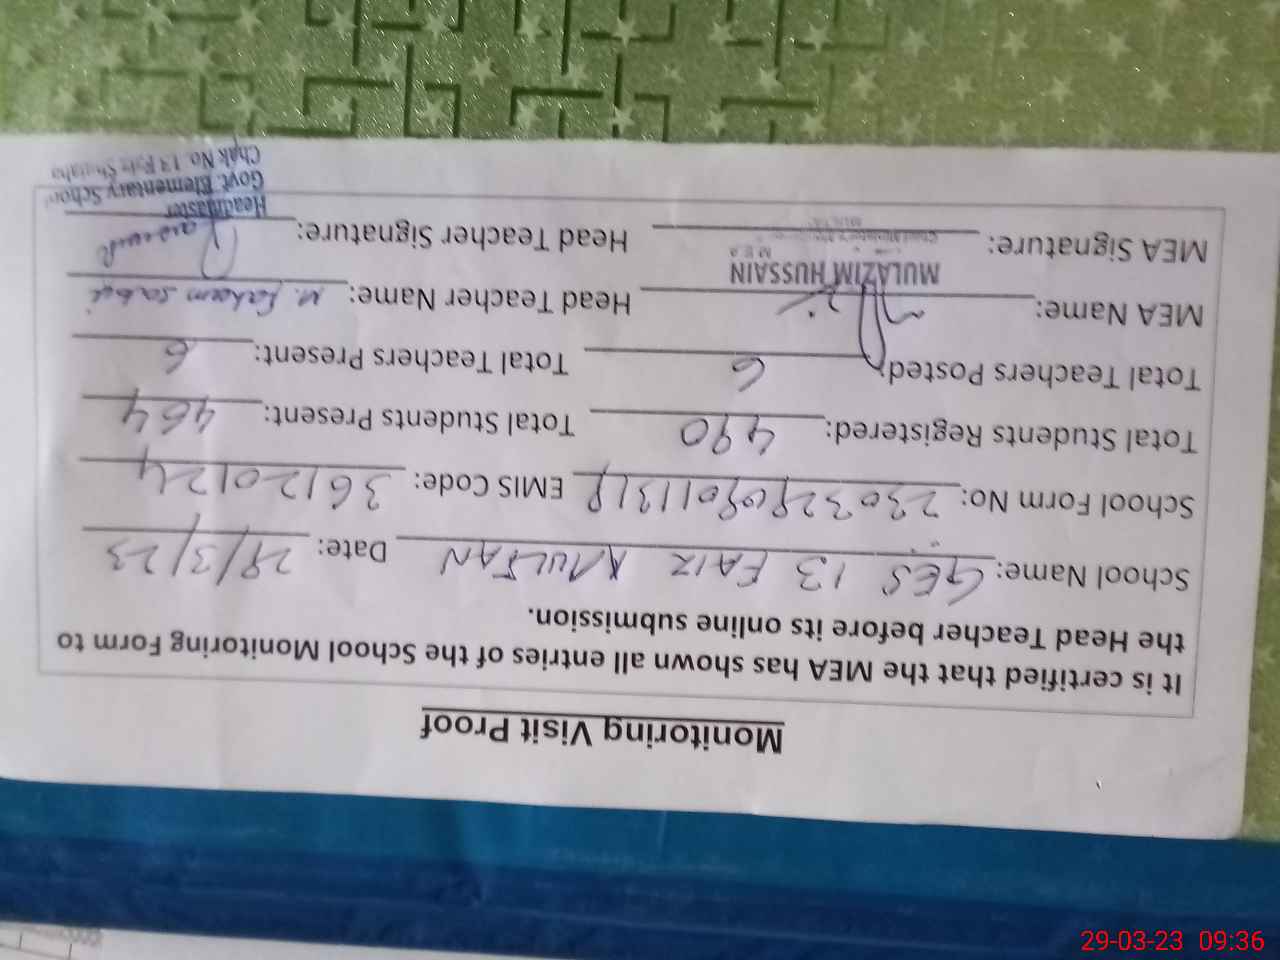 Monitoring Visit Proof
It is certified that the MEA has shown all entries of the School Monitoring Form to
the Head Teacher before its online submission.
School Name: GES 13 FAIZ MULTAN Date: 29/3/23
School Form No: EMIS Code: 36120124
Total Students Registered: 490 Total Students Present: 464
Total Teachers Posted: 6 Total Teachers Present: 6
MEA Name: Head Teacher Name: M. Faheem
MULAZIM HUSSAIN
MEA
MEA Signature: Head Teacher Signature:
Headmaster
Govt. Elementary School
Chak No. 13
29-03-23 09:36